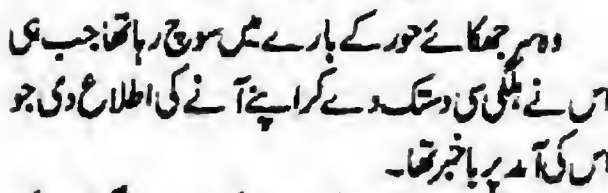 وہ سر جھکائے حور کے بارے میں سوچ رہا تھا جب ہی
اس نے ہلکی سی دستک دے کر اپنے آنے کی اطلاع دی جو
اس کی آمد پر باخبر تھا۔